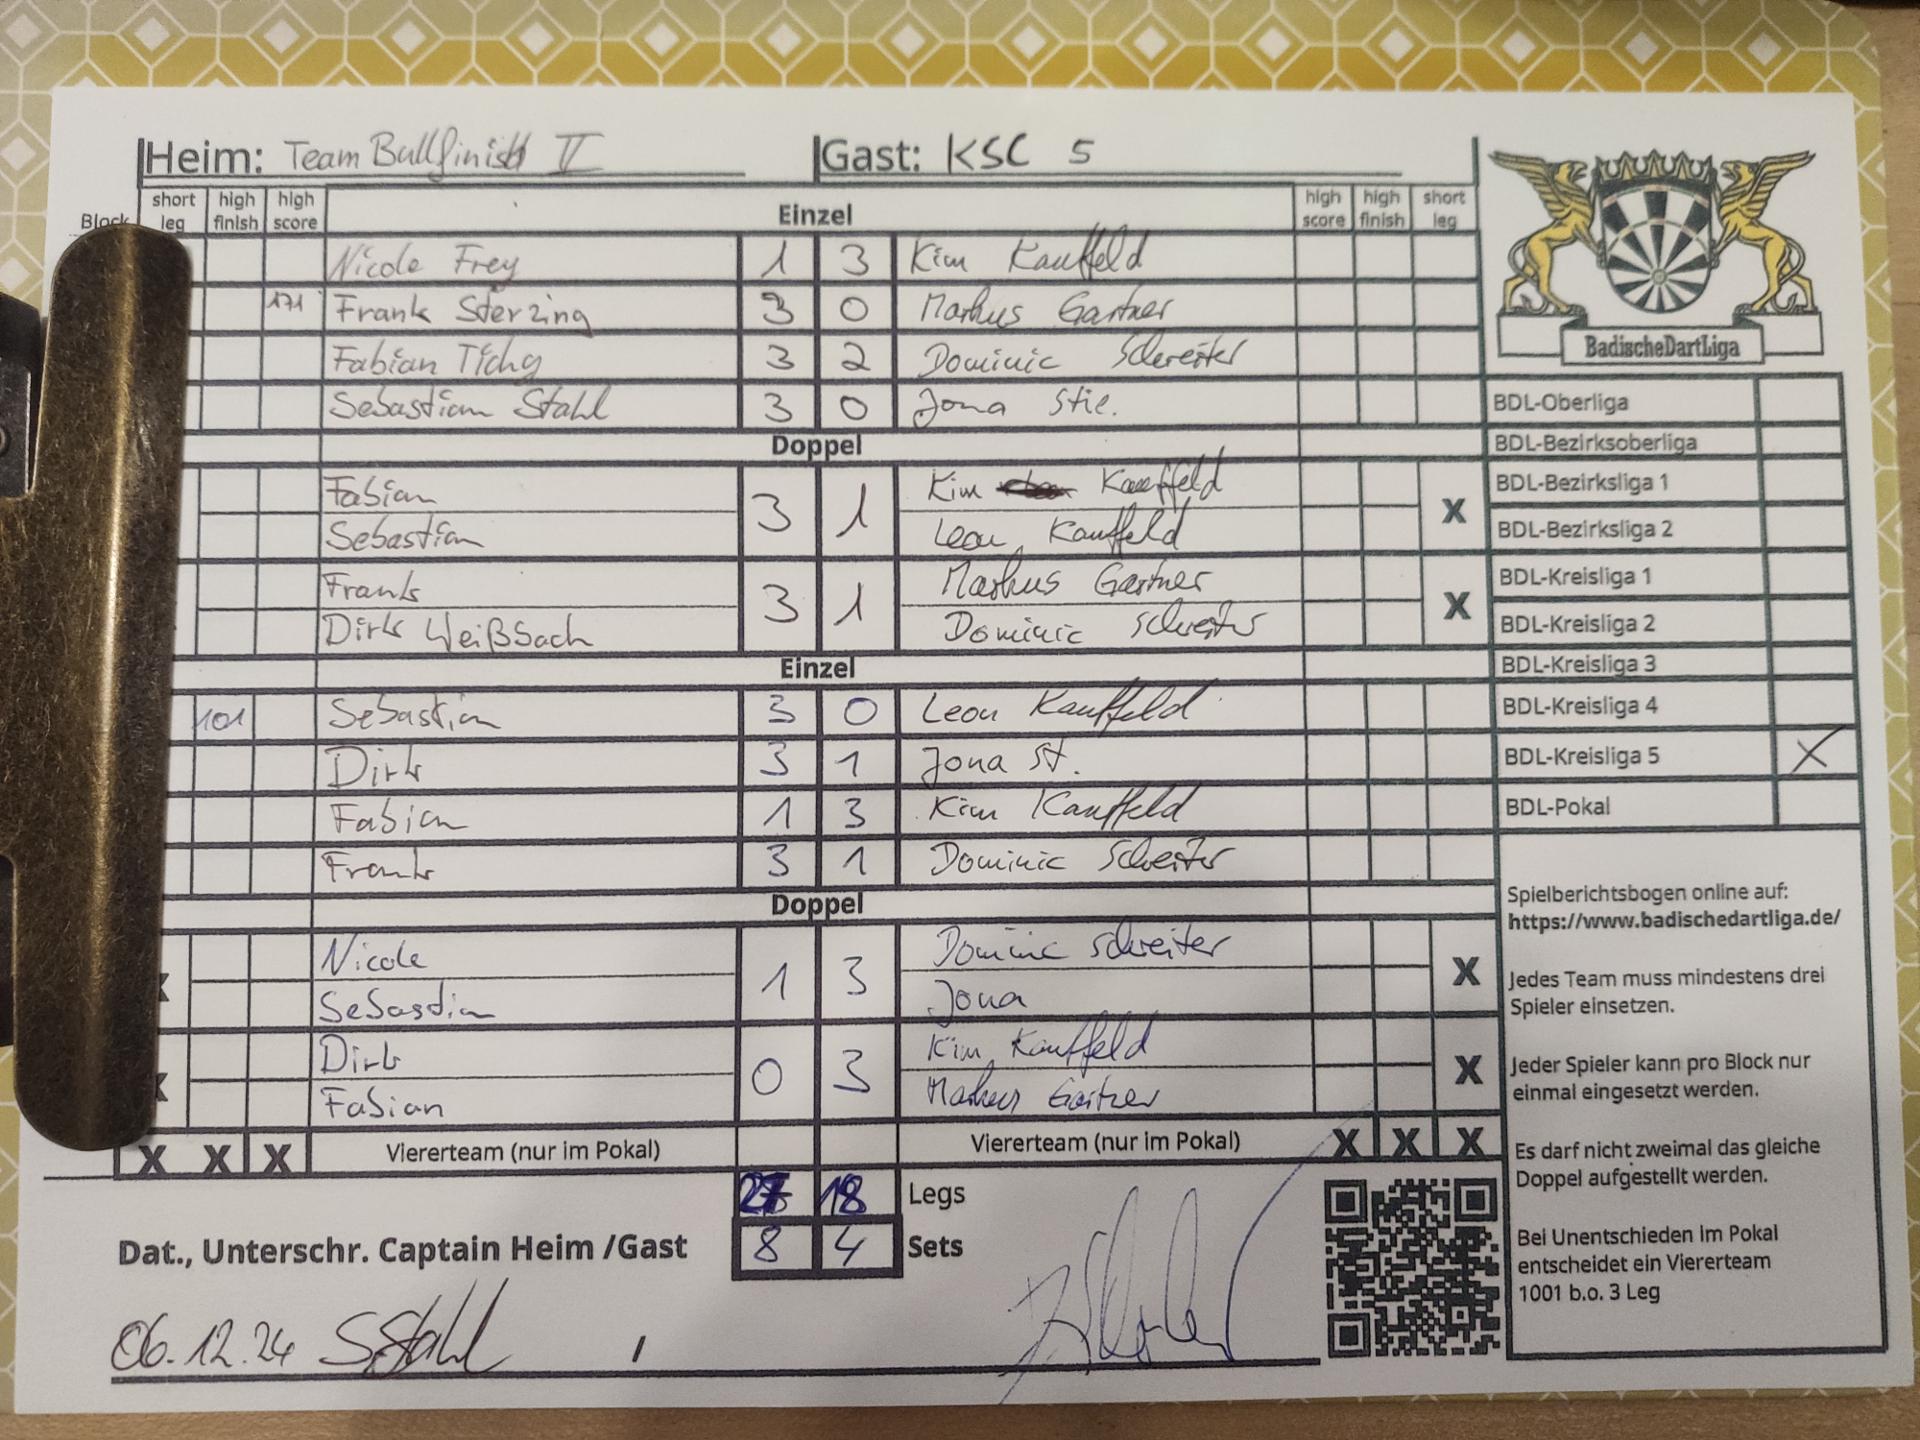 Heim: Team Bullfinish V Gast: KSC 5
Block short leg high finish high score Einzel high score high finish short leg
Nicole Frey 1 3 Kim Kauffeld
171 Frank Sterzing 3 0 Markus Gartner
Fabian Tichy 3 2 Dominic Schreiter
Sebastian Stahl 3 0 Jona Stie.
Doppel
Fabian 3 1 Kim Kauffeld
Sebastian Leon Kauffeld X
Frank 3 1 Markus Gartner
Dirk Weißbach Dominic Schreiter X
Einzel
101 Sebastian 3 0 Leon Kauffeld
Dirk 3 1 Jona St.
Fabian 1 3 Kim Kauffeld
Frank 3 1 Dominic Schreiter
Doppel
Nicole 1 3 Dominic Schreiter
X Sebastian Jona X
Dirk 0 3 Kim Kauffeld
X Fabian Markus Gartner X
X X X Viererteam (nur im Pokal) Viererteam (nur im Pokal) X X X
27 18 Legs
Dat., Unterschr. Captain Heim /Gast 8 4 Sets
06.12.24 S. Stahl /
BadischeDartLiga
BDL-Oberliga
BDL-Bezirksoberliga
BDL-Bezirksliga 1
BDL-Bezirksliga 2
BDL-Kreisliga 1
BDL-Kreisliga 2
BDL-Kreisliga 3
BDL-Kreisliga 4
BDL-Kreisliga 5 X
BDL-Pokal
Spielberichtsbogen online auf:
https://www.badischedartliga.de/
Jedes Team muss mindestens drei
Spieler einsetzen.
Jeder Spieler kann pro Block nur
einmal eingesetzt werden.
Es darf nicht zweimal das gleiche
Doppel aufgestellt werden.
Bei Unentschieden im Pokal
entscheidet ein Viererteam
1001 b.o. 3 Leg